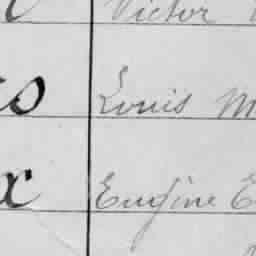 Victor
s Louis M
x Eugène E